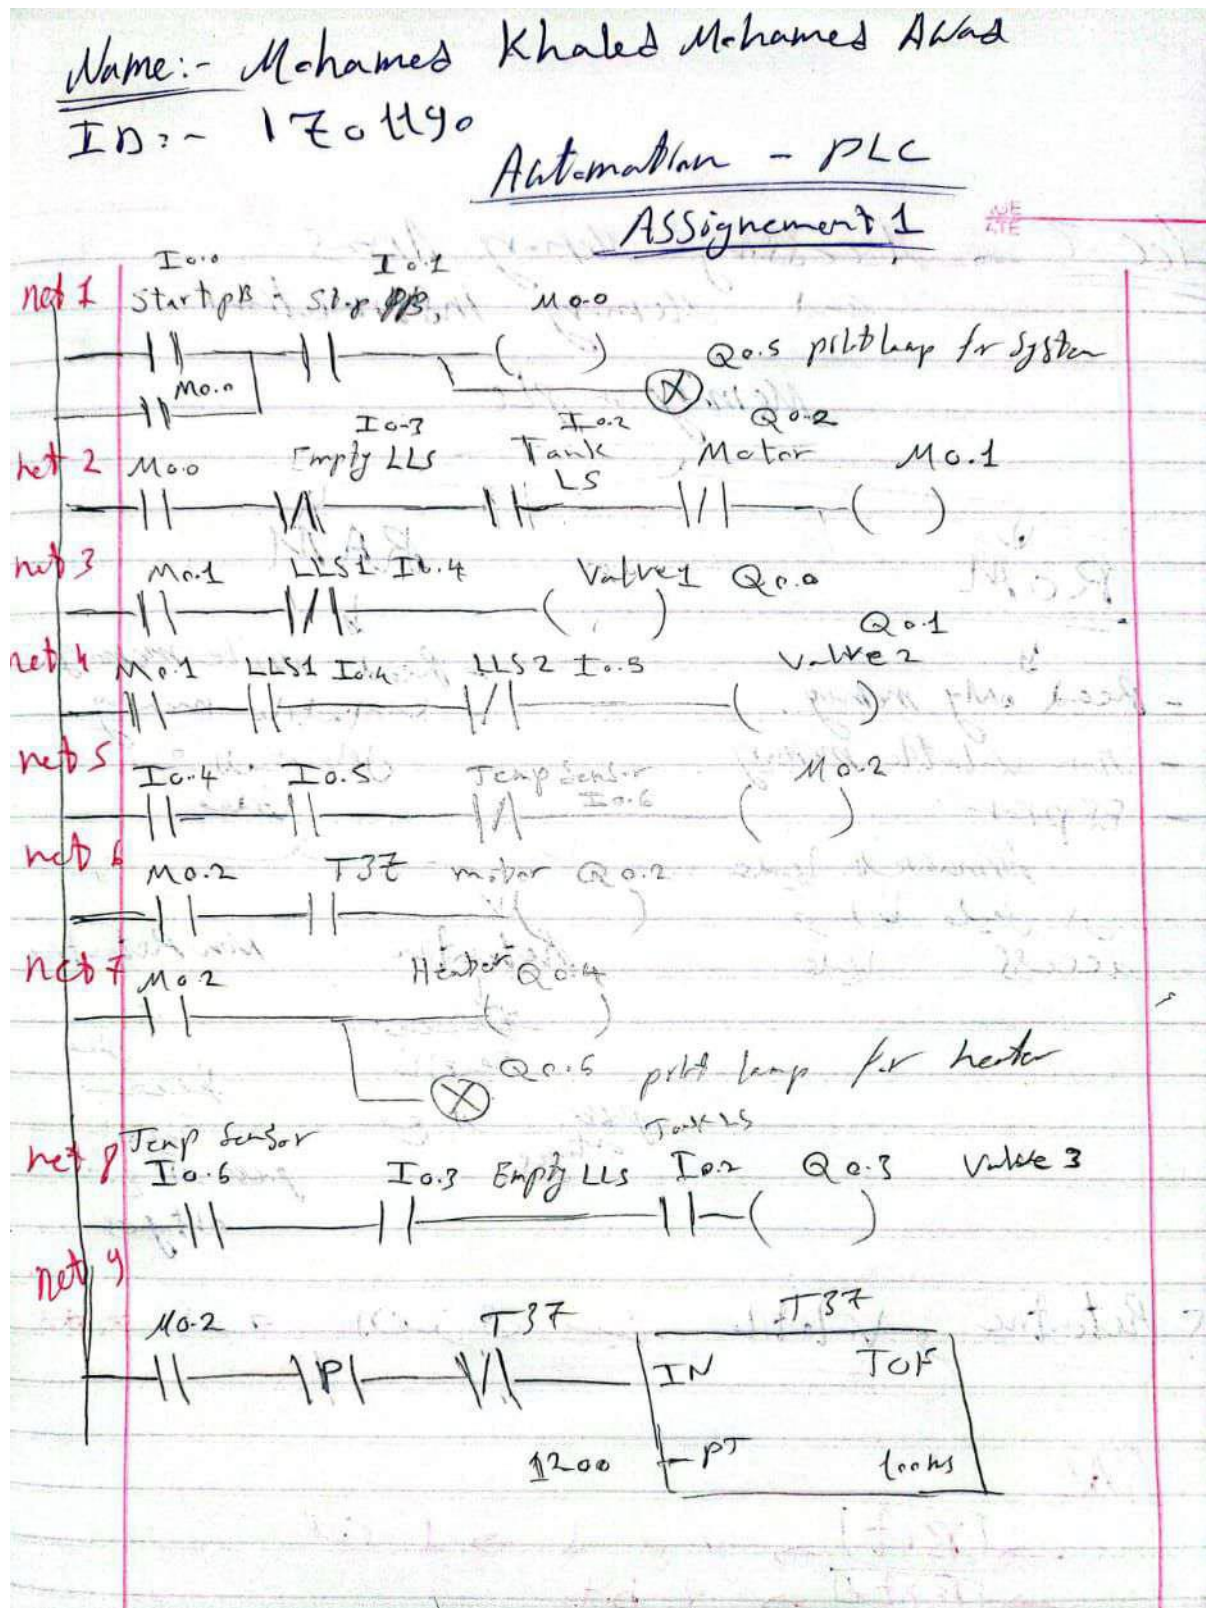 Name:- Mohamed Khaled Mohamed Awad
ID:- 1701190
Automation - PLC
Assignement 1
I0.0 I0.1
net 1 Start PB Stop PB M0.0
Q0.5 pilot lamp for System
M0.0
I0.3 I0.2 Q0.2
net 2 M0.0 Empty LLS Tank LS Motor M0.1
net 3 M0.1 LLS1 I0.4 Valve1 Q0.0
Q0.1
net 4 M0.1 LLS1 I0.4 LLS2 I0.5 Valve 2
net 5 I0.4 I0.5 Temp Sensor I0.6 M0.2
net 6 M0.2 T37 motor Q0.2
net 7 M0.2 Heater Q0.4
Q0.6 pilot lamp for heater
Temp Sensor Tank LS
net 8 I0.6 I0.3 Empty LLS I0.2 Q0.3 Valve 3
net 9
M0.2 T37 T37
P IN TOF
1200 PT 100ms